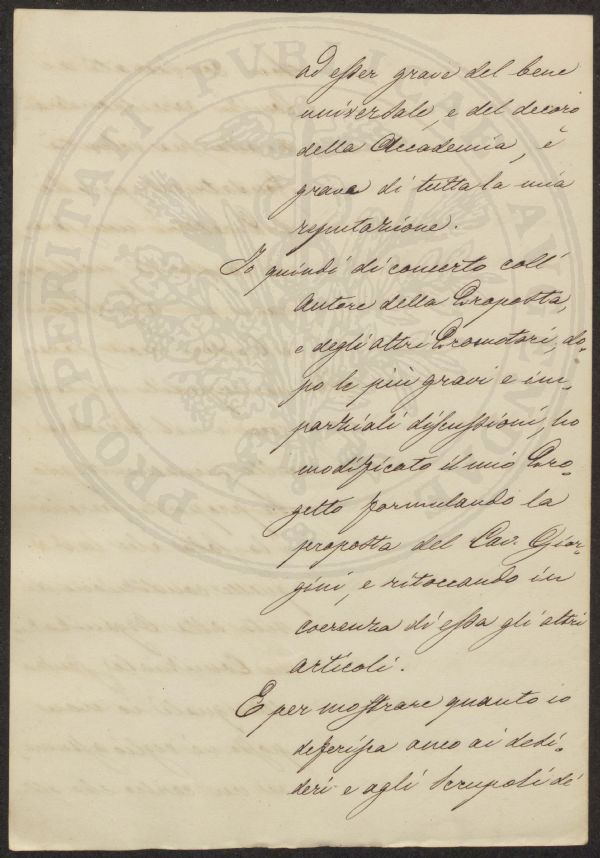 ad esser grave del bene
universale, e del decoro
della Accademia, è
grave di tutta la mia
reputazione.
Io quindi di concerto coll'
Autore della Proposta,
e degli altri Promotori, do-
po le più gravi e im-
parziali discussioni, ho
modificato il mio Pro-
getto formulando la
proposta del Cav. Gior-
gini, e ritoccando in
coerenza di essa gli altri
articoli.
E per mostrare quanto io
deferissa anco ai desi-
deri e agli scrupoli di
PROSPERITATI PUBLICAE AUGENDAE